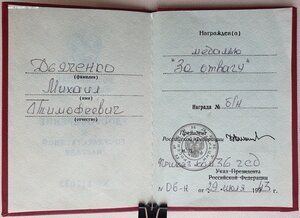 Дьяченко
(фамилия)
Михаил
(имя)
Тимофеевич
(отчество)
Награжден(а)
медалью
"За отвагу"
Награда № б/н
Президент
Российской Федерации
Указ Президента
Российской Федерации
июля